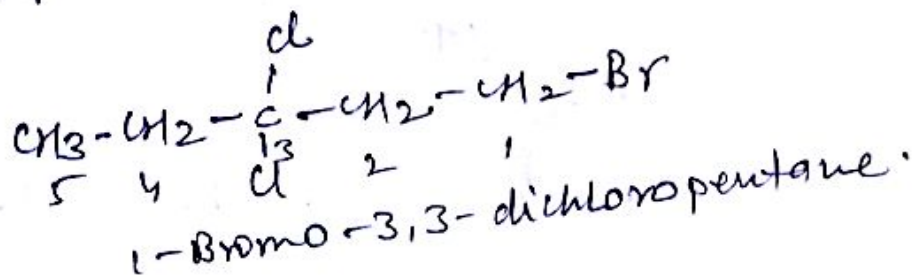 Cl
CH3-CH2-C-CH2-CH2-Br
5 4 Cl 3 2 1
1-Bromo-3,3-dichloropentane.